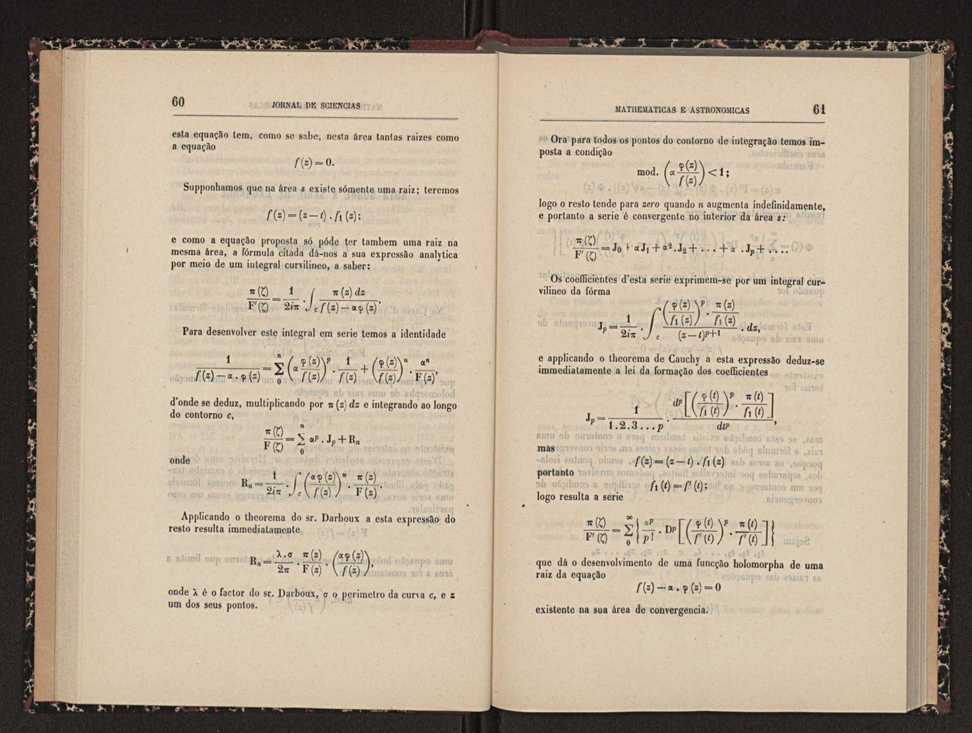 60
JORNAL DE SCIENCIAS
esta equação tem, como se sabe, nesta área tantas raizes como
a equação
f(z) = 0.
Supponhamos que na área s existe sómente uma raiz; teremos
f(z) = (z — t) . f₁(z);
e como a equação proposta só póde ter tambem uma raiz na
mesma área, a fórmula citada dá-nos a sua expressão analytica
por meio de um integral curvilineo, a saber:
π(ζ)/F'(ζ) = 1/2iπ . ∫_c π(z) dz / f(z) — αφ(z).
Para desenvolver este integral em serie temos a identidade
1/(f(z) — α . φ(z)) = Σ_0^n (α φ(z)/f(z))^p . 1/f(z) + (φ(z)/f(z))^n . α^n/F(z),
d'onde se deduz, multiplicando por π(z) dz e integrando ao longo
do contorno c,
π(ζ)/F(ζ) = Σ_0^n α^p . J_p + R_n
onde
R_n = 1/2iπ . ∫_c (αφ(z)/f(z))^n . π(z)/F(z).
Applicando o theorema do sr. Darboux a esta expressão do
resto resulta immediatamente
R_n = λ.σ/2π . π(z)/F(z) . (αφ(z)/f(z)),
onde λ é o factor do sr. Darboux, σ o perimetro da curva c, e z
um dos seus pontos.
MATHEMATICAS E ASTRONOMICAS
61
Ora para todos os pontos do contorno de integração temos im-
posta a condição
mod. (α φ(z)/f(z)) < 1;
logo o resto tende para zero quando n augmenta indefinidamente,
e portanto a serie é convergente no interior da área s:
π(ζ)/F'(ζ) = J₀ + αJ₁ + α² . J₂ + . . . + α . J_p + . . . .
Os coefficientes d'esta serie exprimem-se por um integral cur-
vilineo da fórma
J_p = 1/2iπ . ∫_c (φ(z)/f₁(z))^p . π(z)/f₁(z) / (z — t)^{p+1} . dz,
e applicando o theorema de Cauchy a esta expressão deduz-se
immediatamente a lei da formação dos coefficientes
J_p = 1/1.2.3...p . d^p[(φ(t)/f₁(t))^p . π(t)/f₁(t)]/dt^p,
mas
f(z) = (z — t) . f₁(z)
portanto
f₁(t) = f'(t);
logo resulta a serie
π(ζ)/F'(ζ) = Σ_0^∞ { α^p/p! . D^p [(φ(t)/f'(t))^p . π(t)/f'(t)] }
que dá o desenvolvimento de uma funcção holomorpha de uma
raiz da equação
f(z) — α . φ(z) = 0
existente na sua área de convergencia.